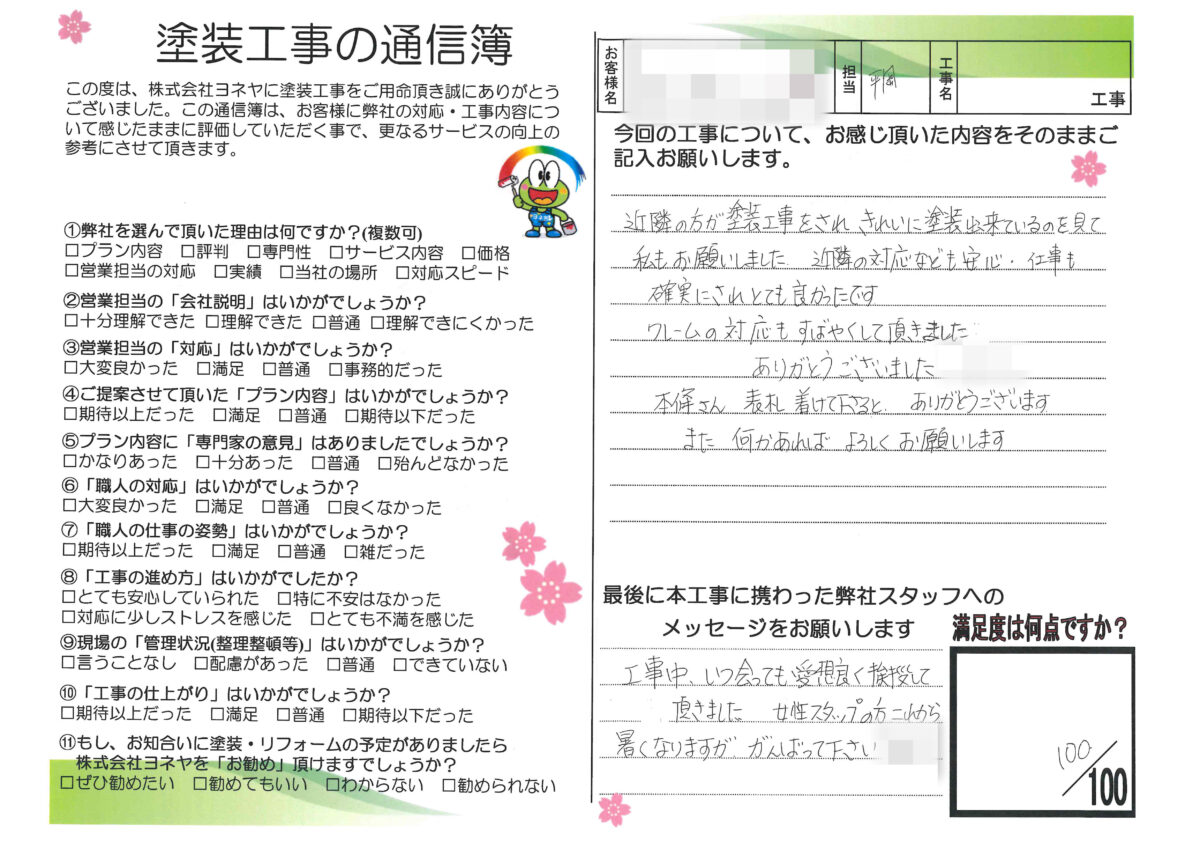 塗装工事の通信簿
この度は、株式会社ヨネヤに塗装工事をご用命頂き誠にありがとう
ございました。この通信簿は、お客様に弊社の対応・工事内容につ
いて感じたままに評価していただく事で、更なるサービスの向上の
参考にさせて頂きます。
①弊社を選んで頂いた理由は何ですか？(複数可)
□プラン内容 □評判 □専門性 □サービス内容 □価格
□営業担当の対応 □実績 □当社の場所 □対応スピード
②営業担当の「会社説明」はいかがでしょうか？
□十分理解できた □理解できた □普通 □理解できにくかった
③営業担当の「対応」はいかがでしょうか？
□大変良かった □満足 □普通 □事務的だった
④ご提案させて頂いた「プラン内容」はいかがでしょうか？
□期待以上だった □満足 □普通 □期待以下だった
⑤プラン内容に「専門家の意見」はありましたでしょうか？
□かなりあった □十分あった □普通 □殆んどなかった
⑥「職人の対応」はいかがでしょうか？
□大変良かった □満足 □普通 □良くなかった
⑦「職人の仕事の姿勢」はいかがでしょうか？
□期待以上だった □満足 □普通 □雑だった
⑧「工事の進め方」はいかがでしたか？
□とても安心していられた □特に不安はなかった
□対応に少しストレスを感じた □とても不満を感じた
⑨現場の「管理状況(整理整頓等)」はいかがでしょうか？
□言うことなし □配慮があった □普通 □できていない
⑩「工事の仕上がり」はいかがでしょうか？
□期待以上だった □満足 □普通 □期待以下だった
⑪もし、お知合いに塗装・リフォームの予定がありましたら
株式会社ヨネヤを「お勧め」頂けますでしょうか？
□ぜひ勧めたい □勧めてもいい □わからない □勧められない
お客様名
担当
工事名
工事
今回の工事について、お感じ頂いた内容をそのままご
記入お願いします。
近隣の方が塗装工事をされ きれいに塗装出来ているのを見て
私もお願いしました 近隣の対応なども安心・仕事も
確実にされとても良かったです
クレームの対応もすばやくして頂きました
ありがとうございました
さん 表札 着けて下さると ありがとうございます
また 何かあれば よろしくお願いします
最後に本工事に携わった弊社スタッフへの
メッセージをお願いします
工事中、いつ会っても愛想良く挨拶して
頂きました 女性スタッフの方これから
暑くなりますが がんばって下さい
満足度は何点ですか？
100/100